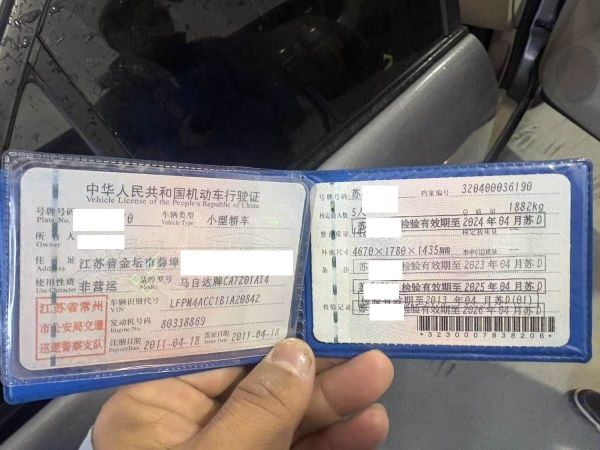 中华人民共和国机动车行驶证
Vehicle License of the People's Republic of China
号牌号码
Plate No.
0
车辆类型
Vehicle Type
小型轿车
所 有 人
Owner
住 址
Address
江苏省金坛市薛埠
使用性质
Use Character
非营运
品牌型号
Model
马自达牌CA7201AT4
江苏省常州
市公安局交通
巡逻警察支队
车辆识别代号
VIN
LFPM4ACC1B1A20842
发动机号码
Engine No.
80338869
注册日期
Register Date
2011-04-18
发证日期
Issue Date
2011-04-18
号牌号码
苏
档案编号
320400036190
核定载人数
5人
总 质 量
1882kg
整备质量
检验有效期至 2024 年 04 月 苏 D
外廓尺寸
4670×1780×1435
备 注
苏
检验有效期至 2023 年 04 月 苏 D
苏
检验有效期至 2025 年 04 月 苏 D
检验记录
检验有效期至 2013 年 04 月 苏 D(01)
苏
检验有效期至 2026 年 04 月 苏 D
*3230007838206*